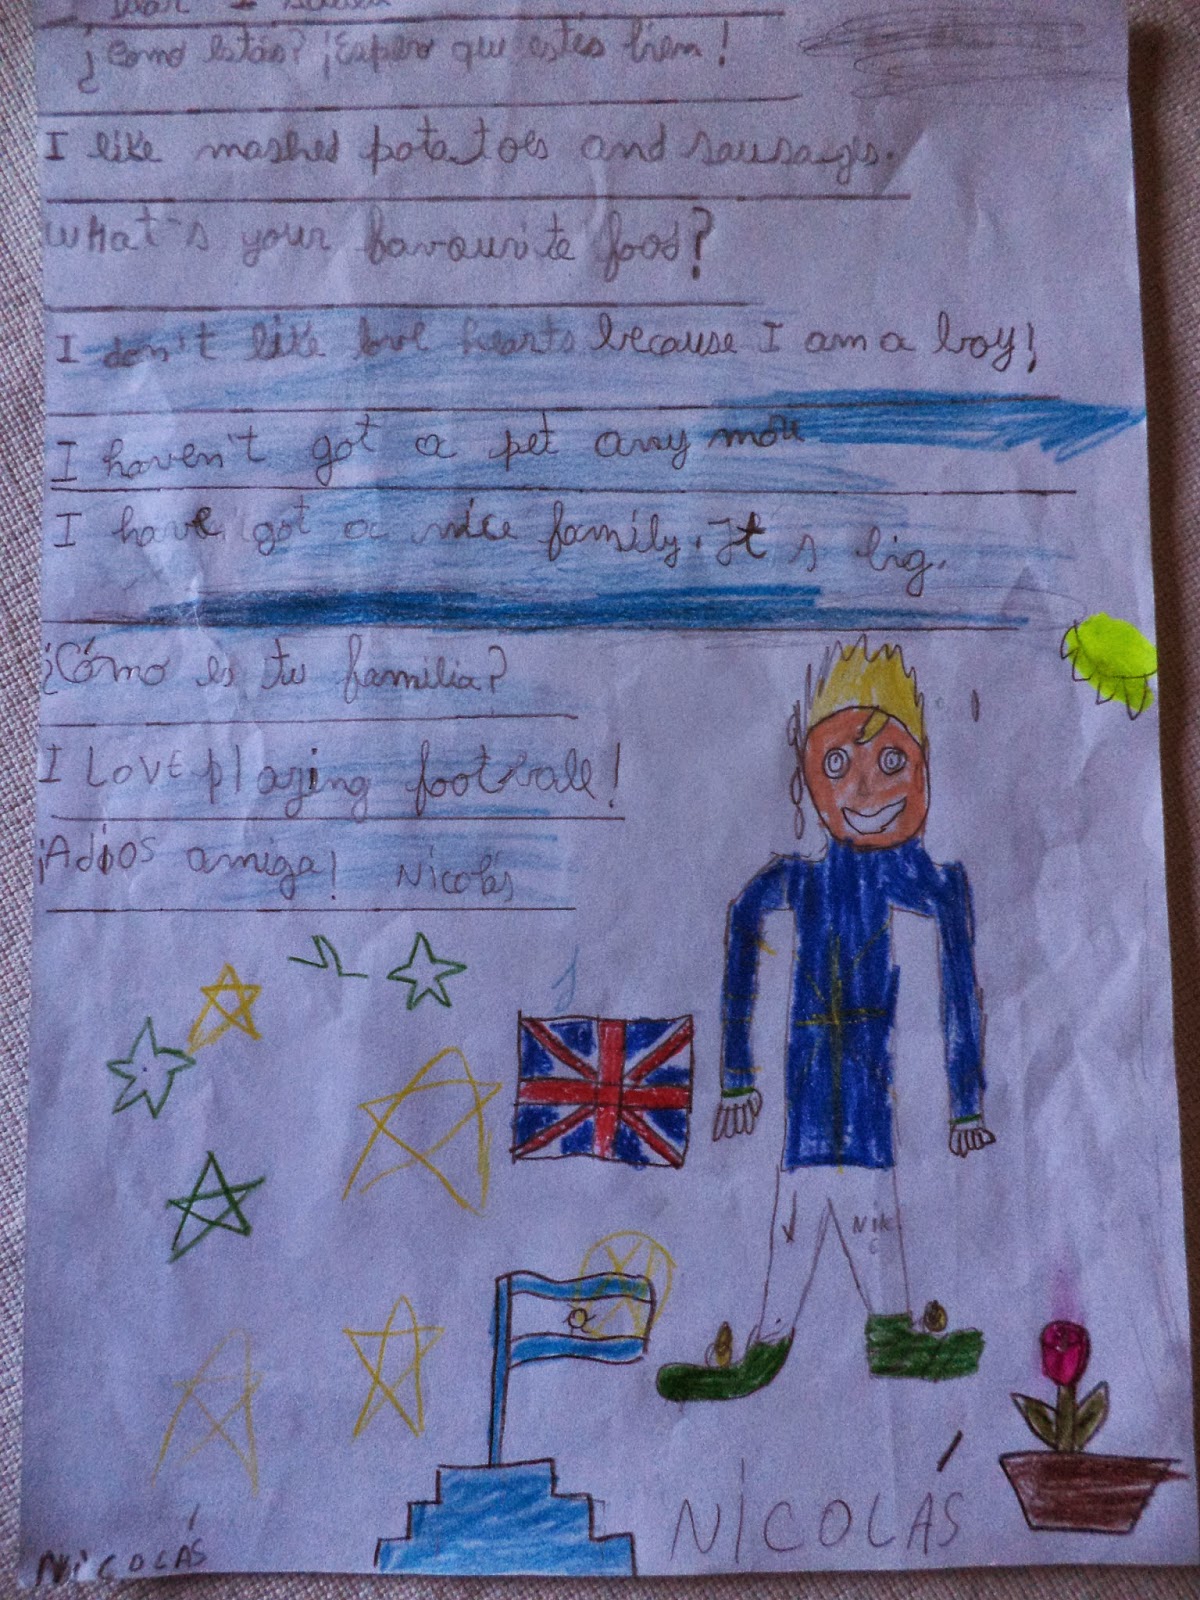 ¿Como estás? ¡Espero que estés bien!
I like mashed potatoes and sausages.
What's your favourite food?
I don't like love hearts because I am a boy!
I haven't got a pet any more
I have got a nice family. It s big.
¿Cómo es tu familia?
I Love playing football!
¡Adios amiga! Nicolás
NiCOLÁS
NiCOLÁS